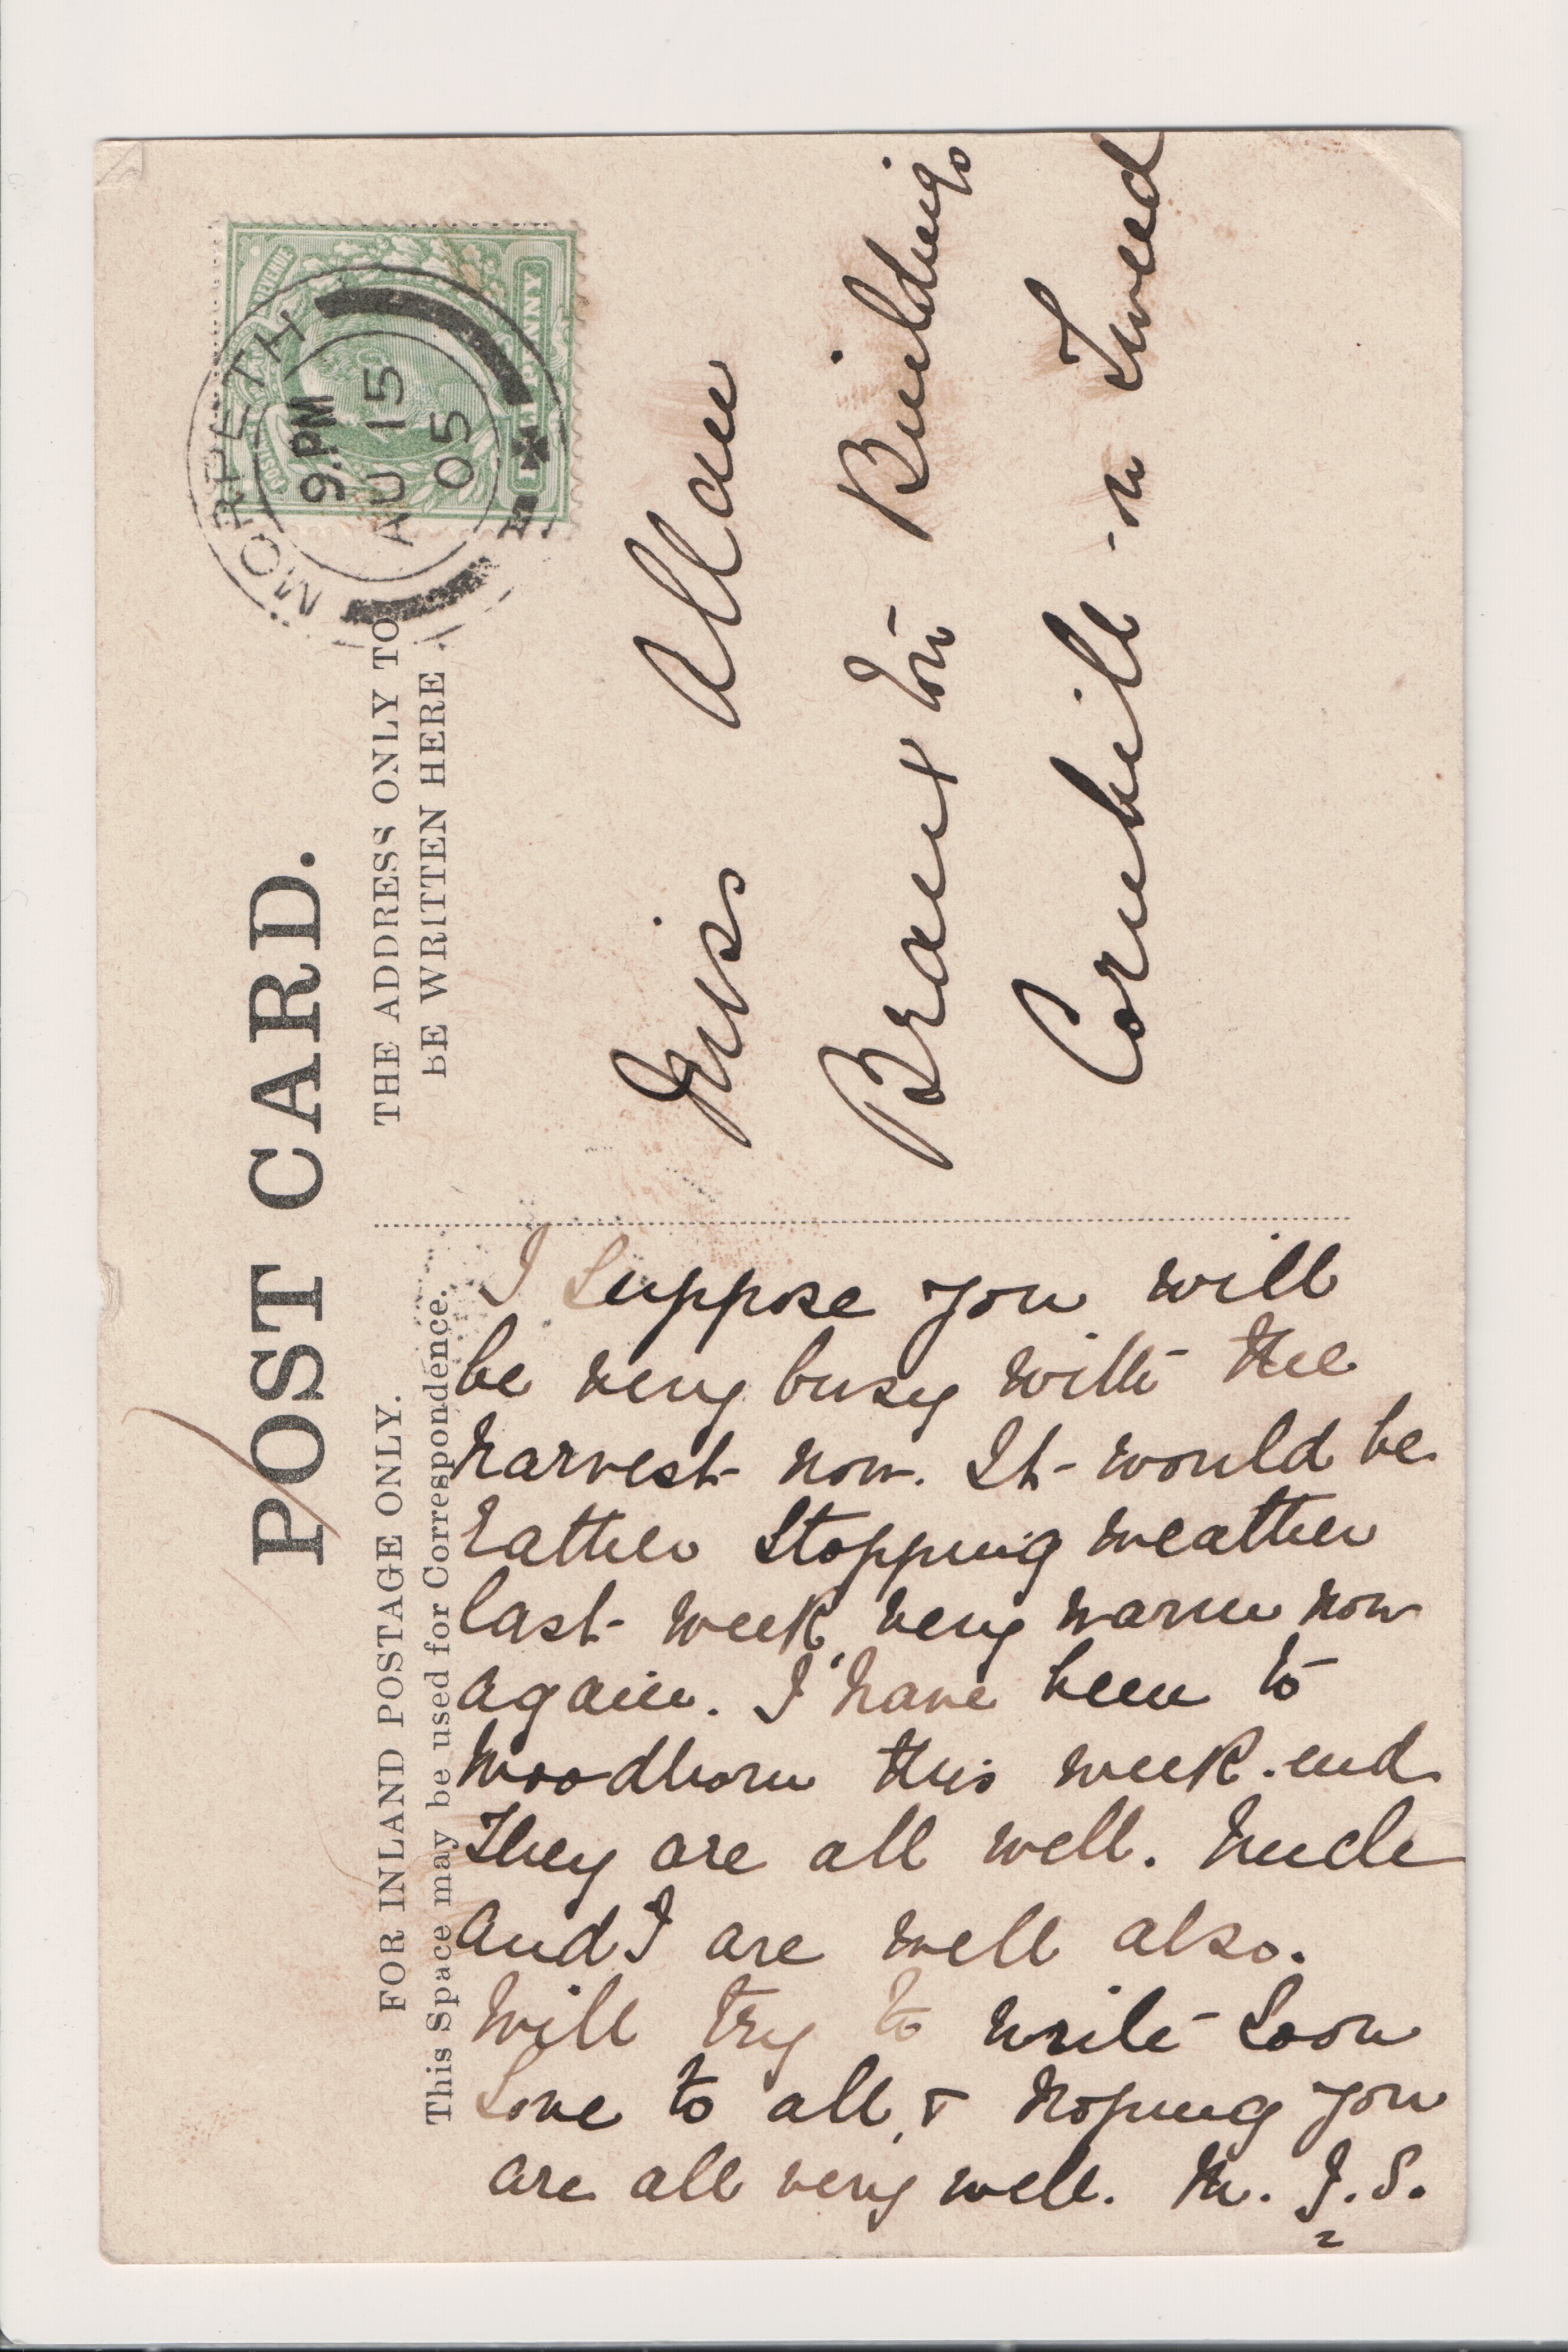 POST CARD.
FOR INLAND POSTAGE ONLY.
This Space may be used for Correspondence.
THE ADDRESS ONLY TO
BE WRITTEN HERE
MORPETH
9.PM
AU 15
05
HALFPENNY
I suppose you will
be very busy with the
harvest now. It would be
rather stopping weather
last week, very warm now
again. I have been to
Woodhorn this week-end
They are all well. Uncle
and I are well also.
Will try to write soon
Love to all, & hoping you
are all very well. M. J. S.
Miss Allan
Branxton Buildings
Cornhill-on Tweed